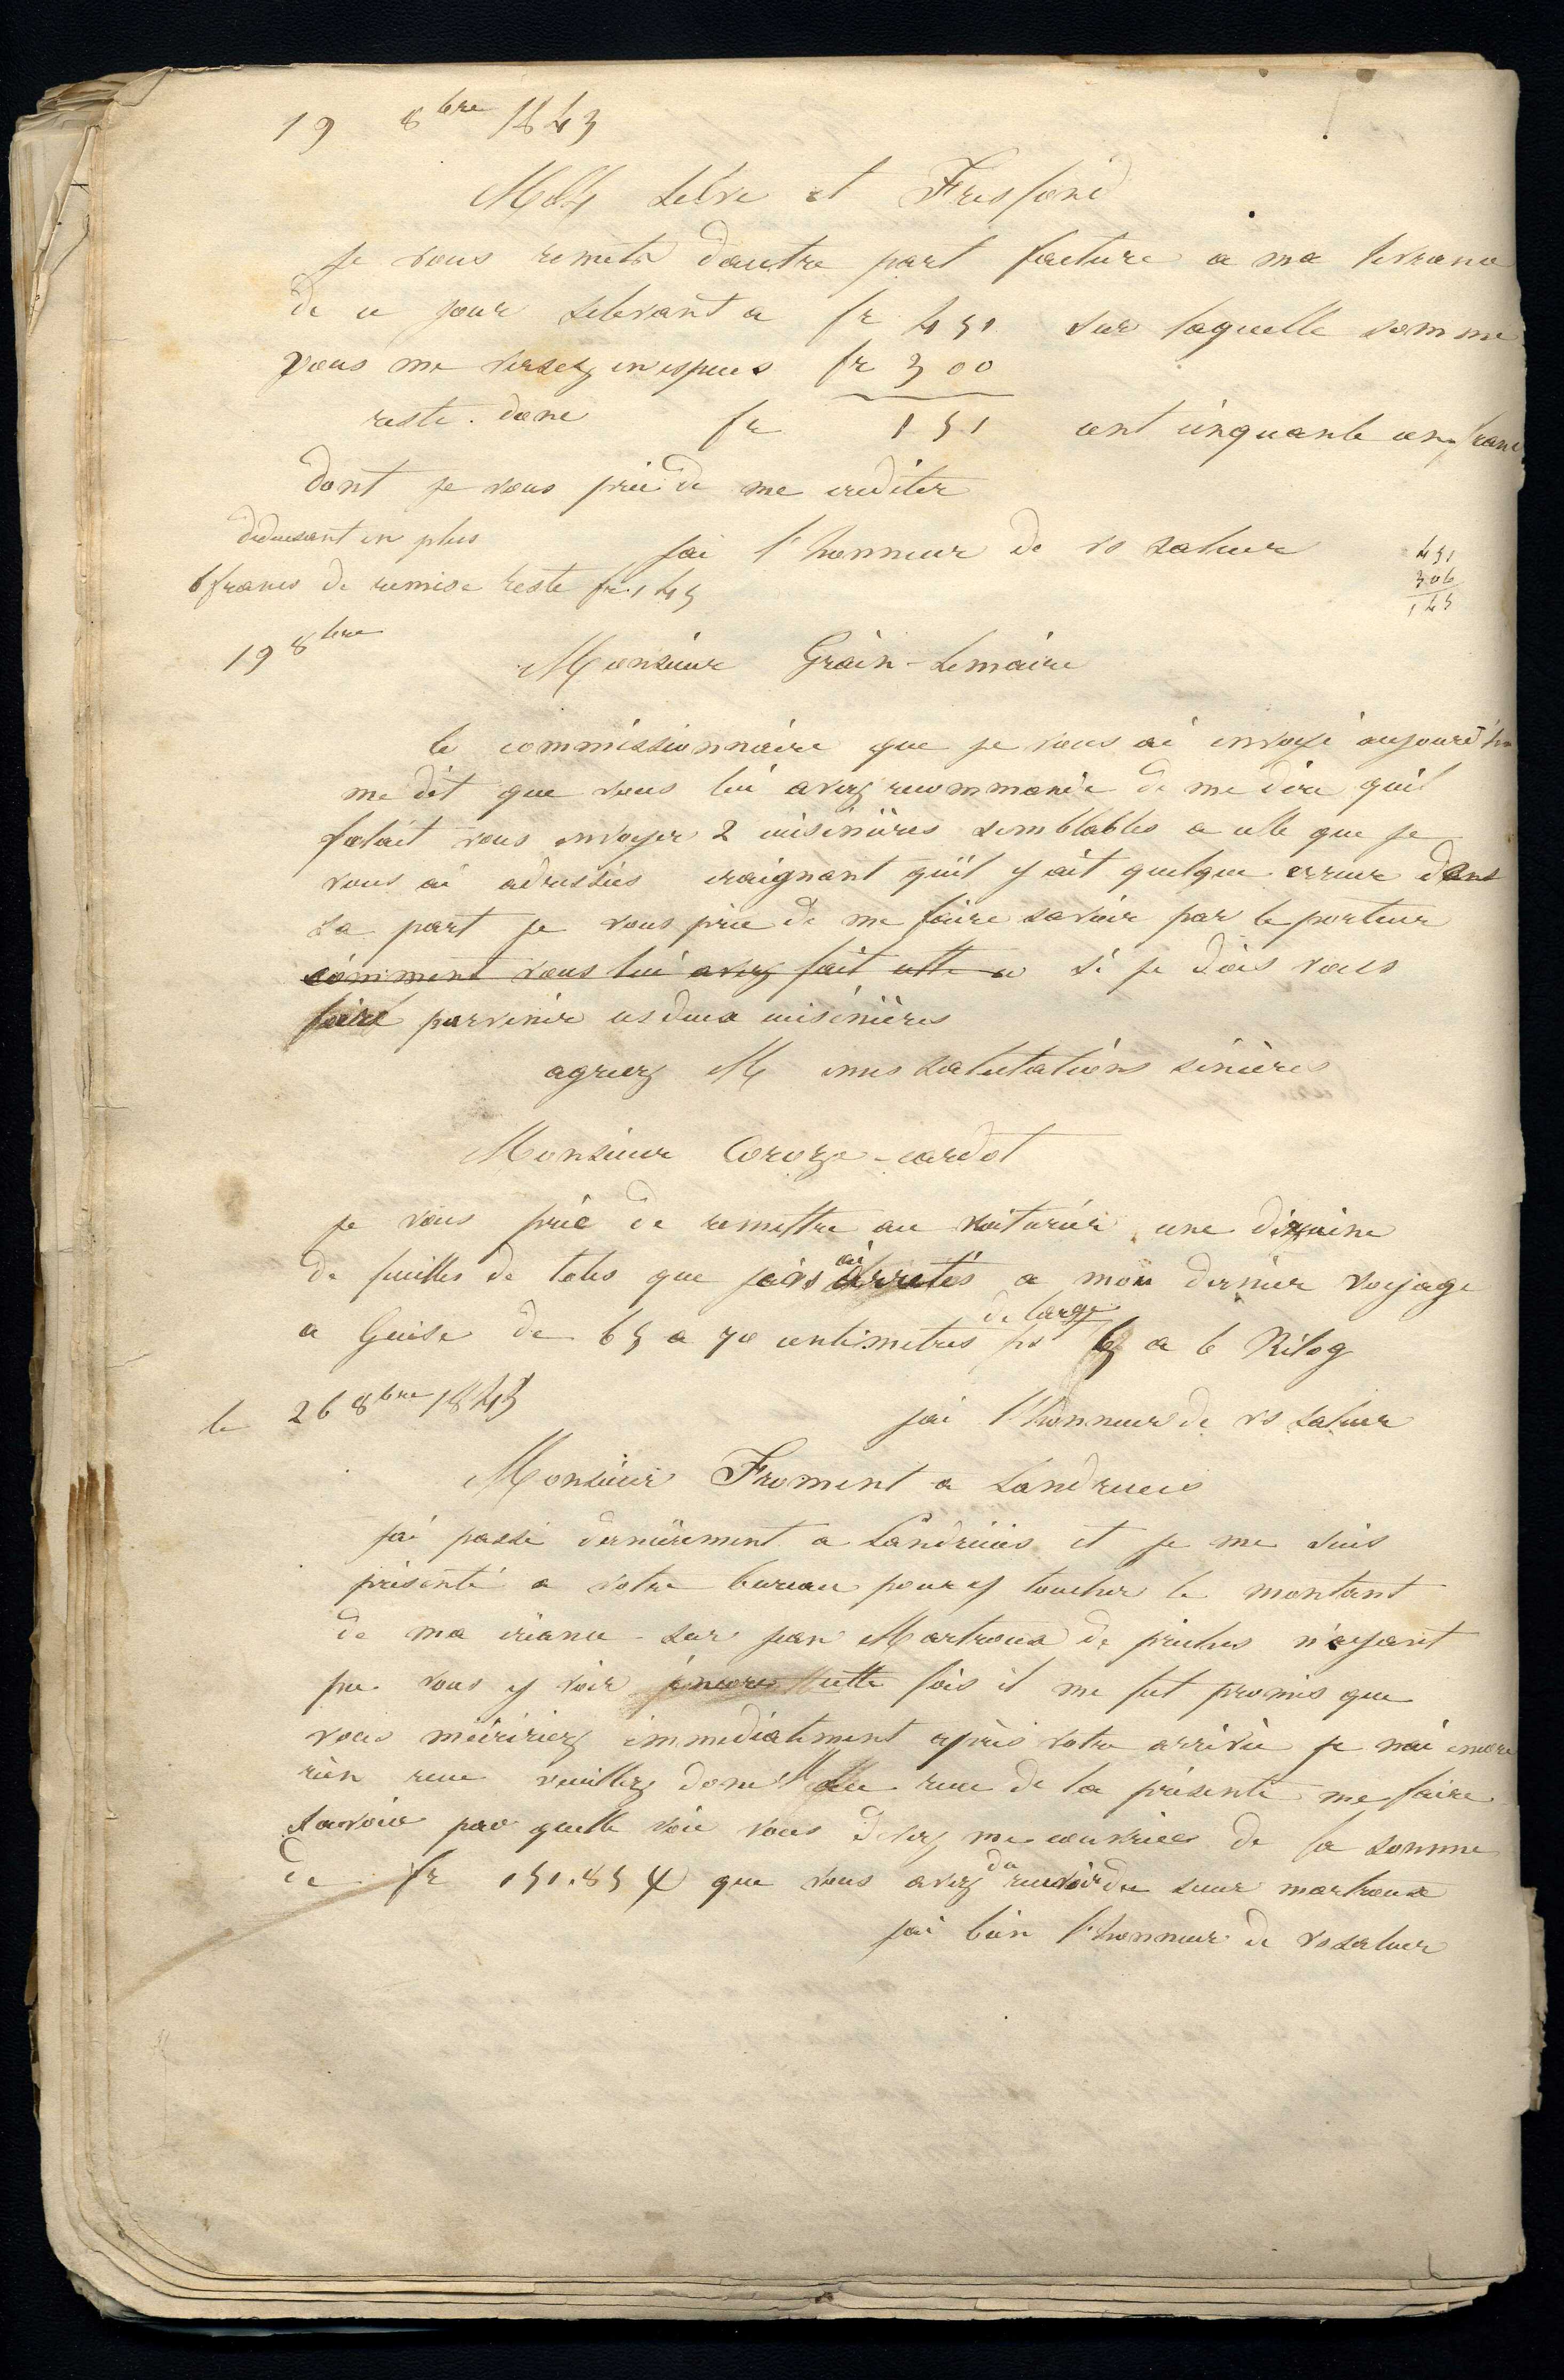 19 8bre 1843
et Frisfond
je vous remets dautre part facture a ma livrance
de ce jour selevant a fr 451 sur laquelle somme
vous me versez en especes fr 300
reste donc fr 151 cent cinquante un franc
dont je vous prie de me crediter
deduisant en plus jai l'honneur de vs saluer 451
6 francs de remise reste fr. 145 306
145
19 8bre Monsieur Grain-Lemaire
le commissionnaire que je vous ai envoyé aujourd'hu
me dit que vous lui avez recommandé de me dire quil
falait vous envoyer 2 cuisinières semblables a celle que je
vous ai adressées craignant quil y ait quelque erreur dans
sa part je vous prie de me faire savoir par le porteur
comment vous lui avez fait cette si je dois vous
faire parvenir ces deux cuisinières
agreez M mes salutations sincères
Monsieur Coroze-cardot
je vous prie de remettre au voiturier une dizaine
de feuilles de toles que jai arretés a mon dernier voyage
de large
a Guise de 65 a 70 centimetres ps 5 a 6 Kilog
le 26 8bre 1843 jai l'honneur de vs saluer
Monsieur Froment a Landrecis
jai passé dernièrement a Landrecies et je me suis
présenté a votre bureau pour y toucher le montant
de ma créance sur jean Martroux de prisches n'ayant
pu vous y voir encore cette fois il me fut promis que
vous m'écririez immediatement après votre arrivée je n'ai encore
rien recu veuillez donc recu de la présente me faire
savoir par quelle voie vous desirez me couvrir de la somme
du
de fr 151.85 que vous avez recevoir du sieur martroux
jai bien l'honneur de vs saluer